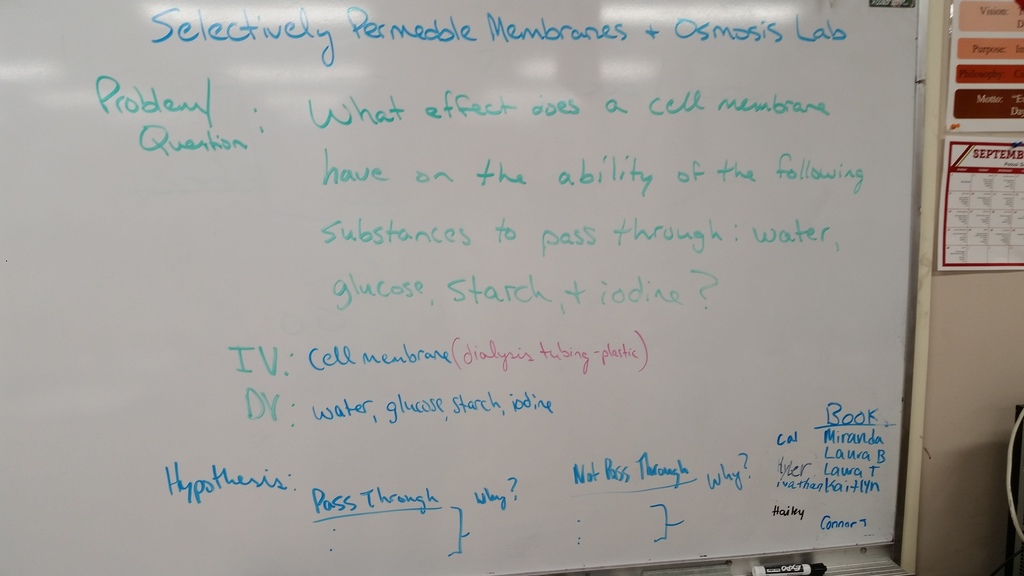 Selectively Permeable Membranes + Osmosis Lab
Problem/
Question:
What effect does a cell membrane
have on the ability of the following
substances to pass through: water,
glucose, starch, + iodine?
IV: Cell membrane (dialysis tubing-plastic)
DV: water, glucose, starch, iodine
Hypothesis:
Pass Through
Why?
Not Pass Through
Why?
Book
Cal Miranda
Laura B
Kyler Laura T
ivathan Kaitlyn
Hailey
Connor T
EXPO
Vision:
Purpose:
Philosophy:
Motto:
SEPTEMB